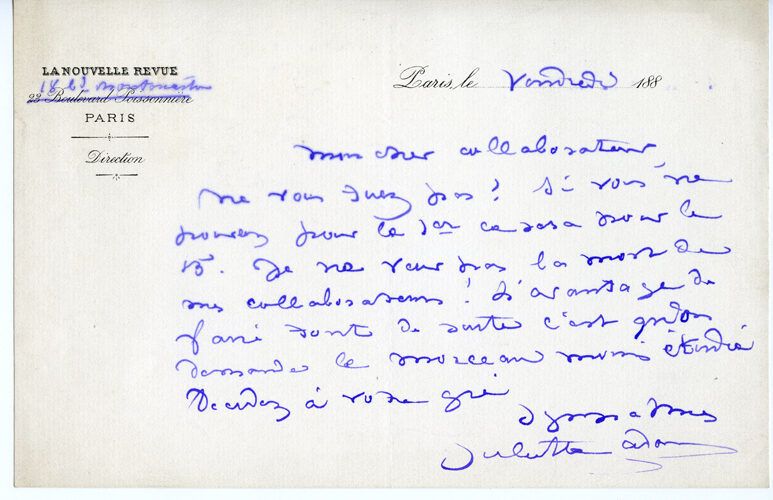 LA NOUVELLE REVUE
18 Bd Montmartre
22 Boulevard Poissonnière
PARIS
Direction
Paris, le Vendredi 188
mon cher collaborateur,
ne vous tuez pas! Si vous ne
pouvez pour le 1er ce sera pour le
15. Je ne veux pas la mort de
mes collaborateurs! L'avantage de
faire tout de suite c'est qu'on
demande le morceau moins étendu
Décidez à votre gré
Juliette Adam